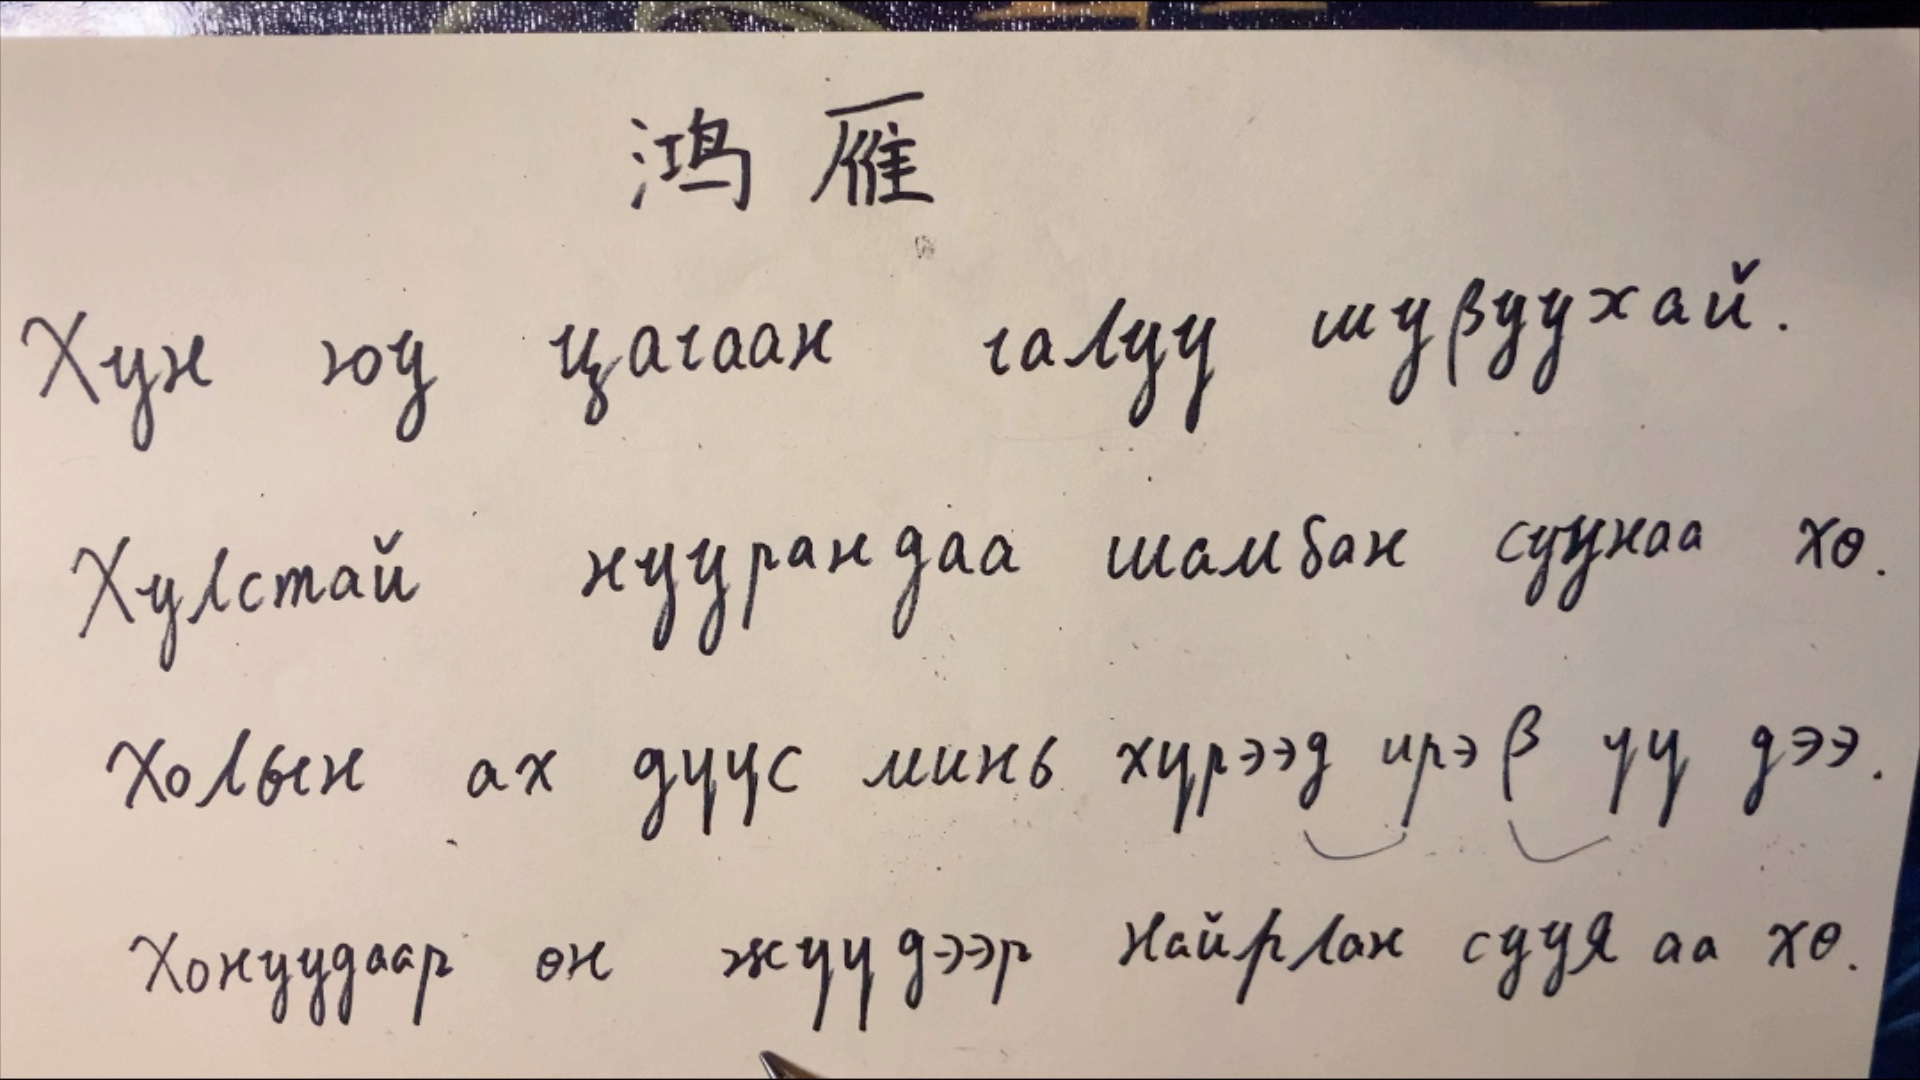 鸿雁
Хун юу цагаан галуу шувуухай.
Хулстай нуурандаа шамбан суунаа хө.
Холын ах дуус минь хүрээд ирэв үү дээ.
Хонуудаар өн жүүдээр найрлан сууя аа хө.